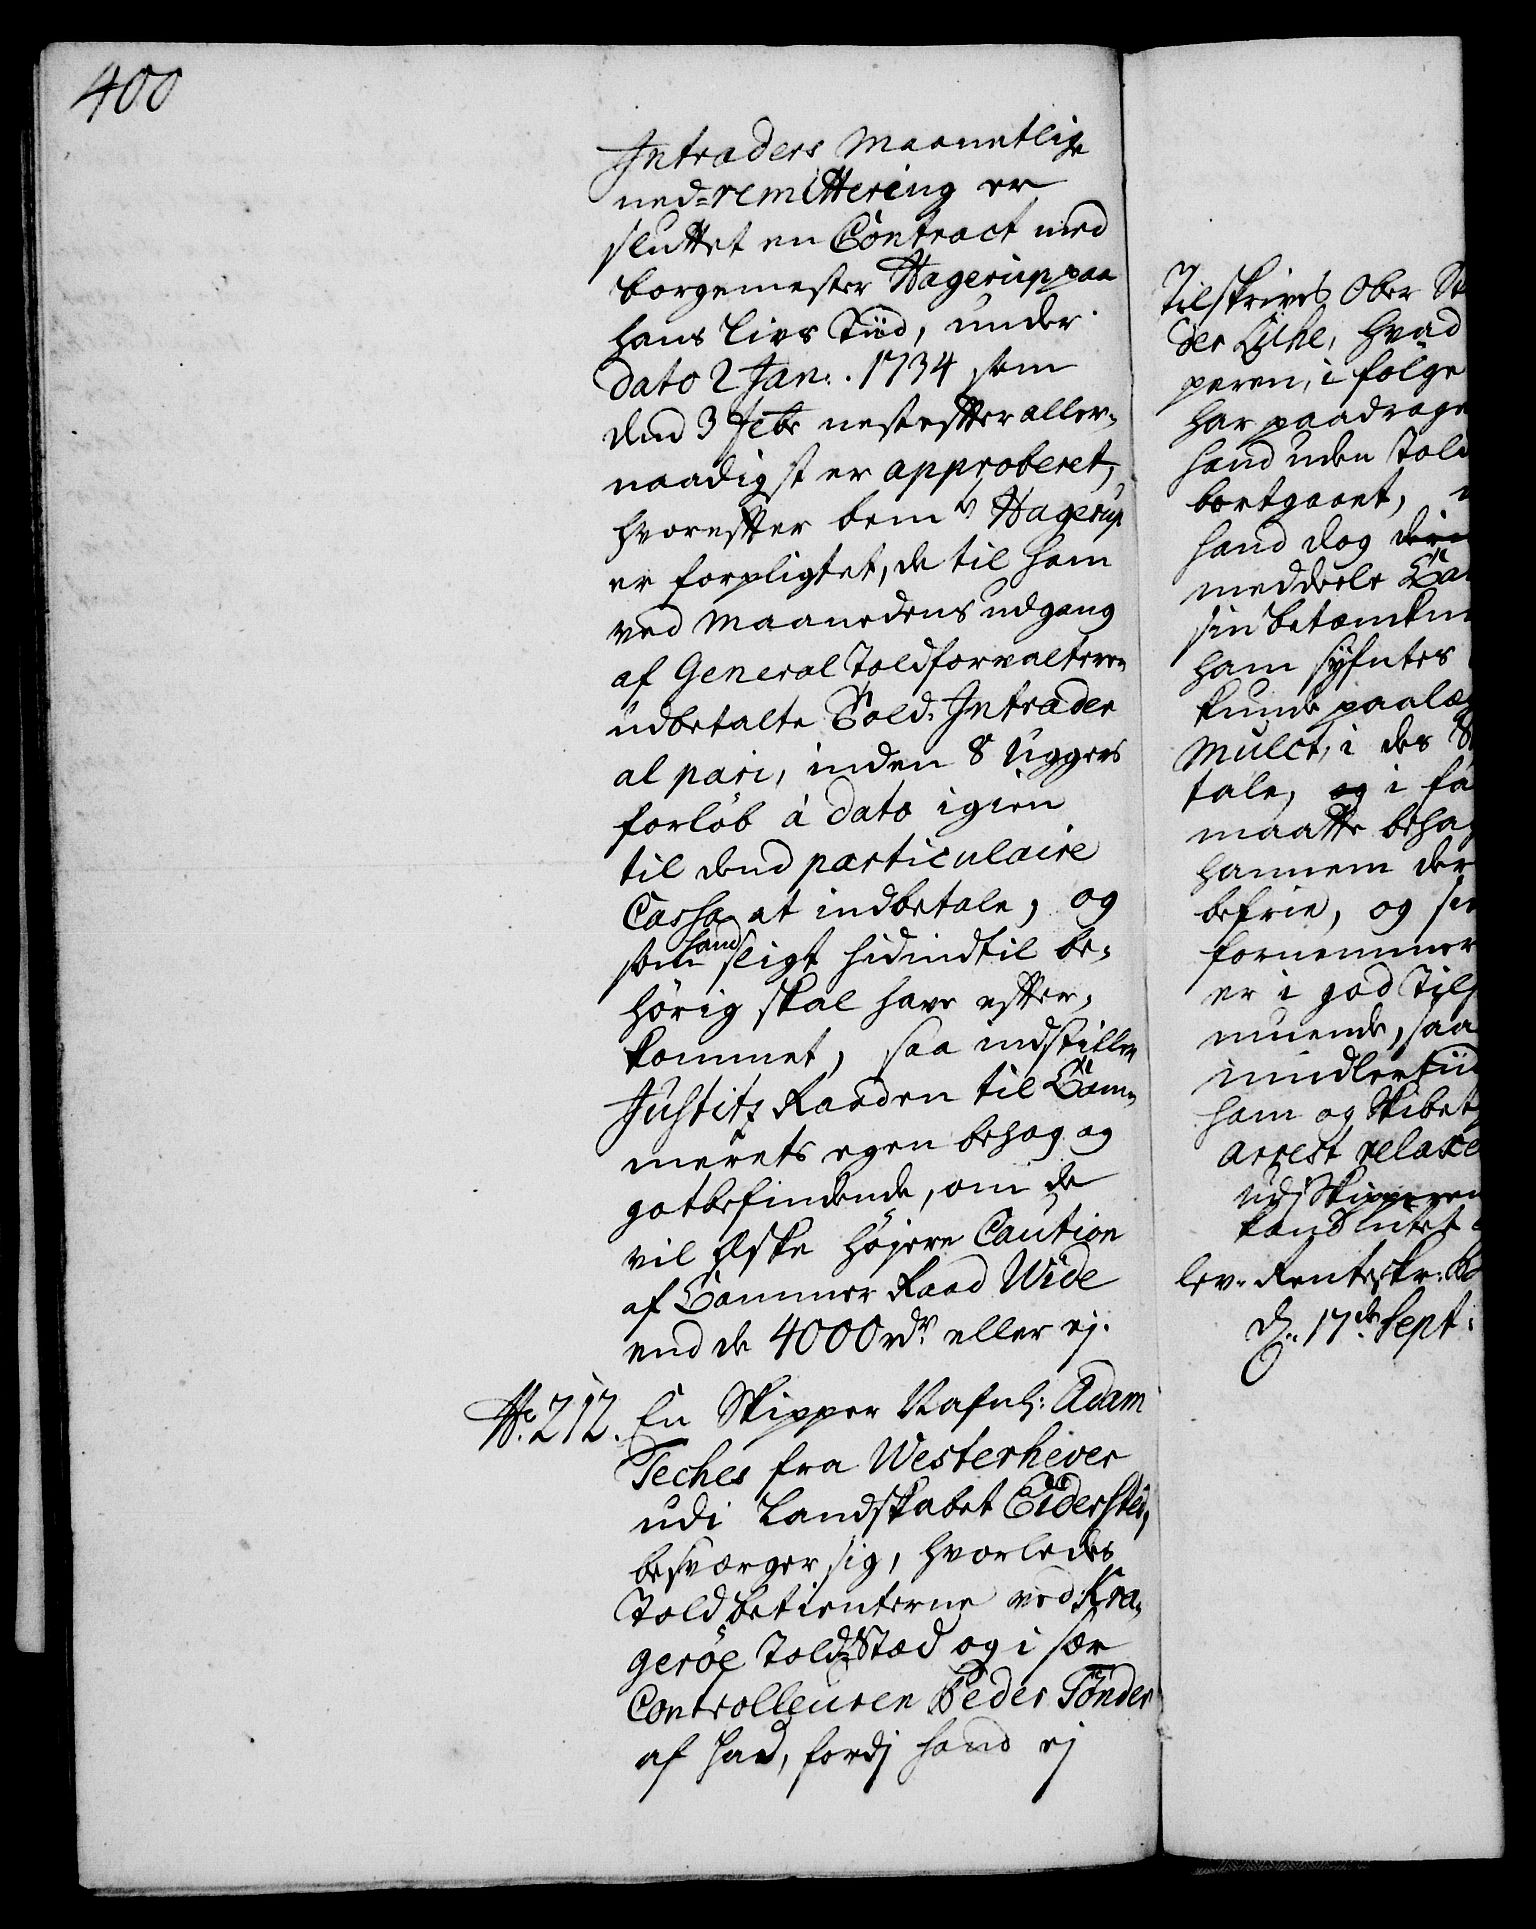 400
Intraders maanetlige
ned-remittering er
sluttet en Contract med
borgemester Hagerup paa
hans Livs Tiid, under
dato 2 Jan: 1734 som
dend 3 Febr nestefter aller-
naadigst er approberet,
hvorefter bemte Hagerup
er forpligtet, de til ham
ved Maanedens udgang
af General Toldforvalteren
udbetalte Told-Intrader
al pari, inden 8 Uggers
forløb à dato igien
til dend particulaire
Cassa at indbetale, og
som hand sligt hidindtil be-
hørig skal have efter-
kommet, saa indstiller
Justitz Raaden til Cam-
merets egen behag og
gotbefindende, om de
vil Æske høyere Caution
af Cammer Raad Wide
end de 4000 rdr eller ej.
No. 212. En Skipper Nafnl: Adam
Teches fra Westerhever
udi Landskabet Eidersted,
besværger sig, hvorledes
Toldbetienterne ved Kra-
gerøe Told-Stæd og i sær
Controlleuren Peder Tønder
af had, fordj hand ej
Tilskrives Ober
der Lühe, hvad
peren, i følge
har paadrage
hand uden Told
bortgaaet,
hand dog
meddeele
sin betænkn
ham syfntes
kunde paalæg
Mulct, i des
tale, og i
maatte behag
hannem der
befrie, og
fornemmer
er i god Tils
muende, saa
imidlertiid
ham og Skibet
arrest relaxe
udj Skipperen
kand
lev. Renteskr:
d. 17de Sept: